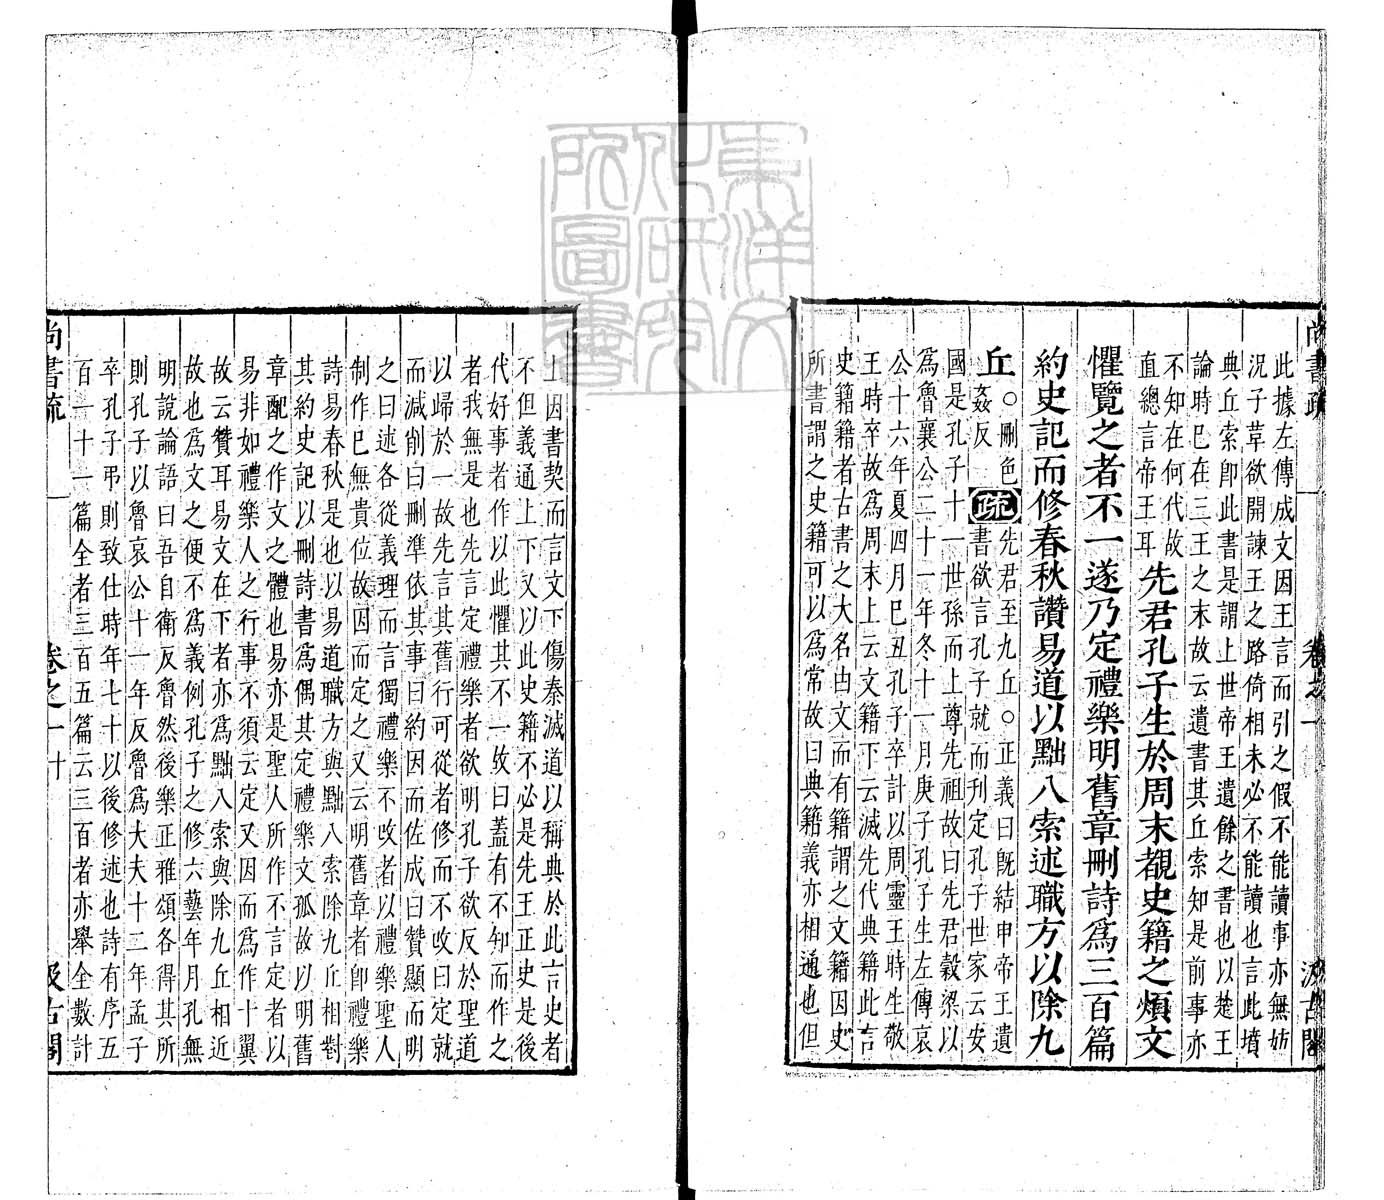 尚書疏 一 卷之一 汲古閣
此據左傳成文因王言而引之假不能讀事亦無妨
況子草欲開諫王之路倚相未必不能讀也言此墳
典丘索卽此書是謂上世帝王遺餘之書也以楚王
論時巳在三王之末故云遺書其丘索知是前事亦
不知在何代故
直總言帝王耳
先君孔子生於周末覩史籍之煩文
懼覽之者不一遂乃定禮樂明舊章刪詩爲三百篇
約史記而修春秋讚易道以黜八索述職方以除九
丘
○刪色
姦反
疏
先君至九丘○正義曰旣結申帝王遺
書欲言孔子就而刊定孔子世家云安
國是孔子十一世孫而上尊先祖故曰先君穀梁以
爲魯襄公二十一年冬十一月庚子孔子生左傳哀
公十六年夏四月巳丑孔子卒計以周靈王時生敬
王時卒故爲周末上云文籍下云滅先代典籍此言
史籍籍者古書之大名由文而有籍謂之文籍因史
所書謂之史籍可以爲常故曰典籍義亦相通也但
上因書契而言文下傷秦滅道以稱典於此言史者
不但義通上下又以此史籍不必是先王正史是後
代好事者作以此懼其不一故曰蓋有不知而作之
者我無是也先言定禮樂者欲明孔子欲反於聖道
以歸於一故先言其舊行可從者修而不攺曰定就
而減削曰刪準依其事曰約因而佐成曰贊顯而明
之曰述各從義理而言獨禮樂不攺者以禮樂聖人
制作巳無貴位故因而定之又云明舊章者卽禮樂
詩易春秋是也以易道職方與黜八索除九丘相對
其約史記以刪詩書爲偶其定禮樂文孤故以明舊
章配之作文之體也易亦是聖人所作不言定者以
易非如禮樂人之行事不須云定又因而爲作十翼
故云贊耳易文在下者亦爲黜八索與除九丘相近
故也爲文之便不爲義例孔子之修六藝年月孔無
明說論語曰吾自衛反魯然後樂正雅頌各得其所
則孔子以魯哀公十一年反魯爲大夫十二年孟子
卒孔子弔則致仕時年七十以後修述也詩有序五
百一十一篇全者三百五篇云三百者亦舉全數計
尚書疏 一 卷之一 十 汲古閣
東洋文
化研究
所圖書